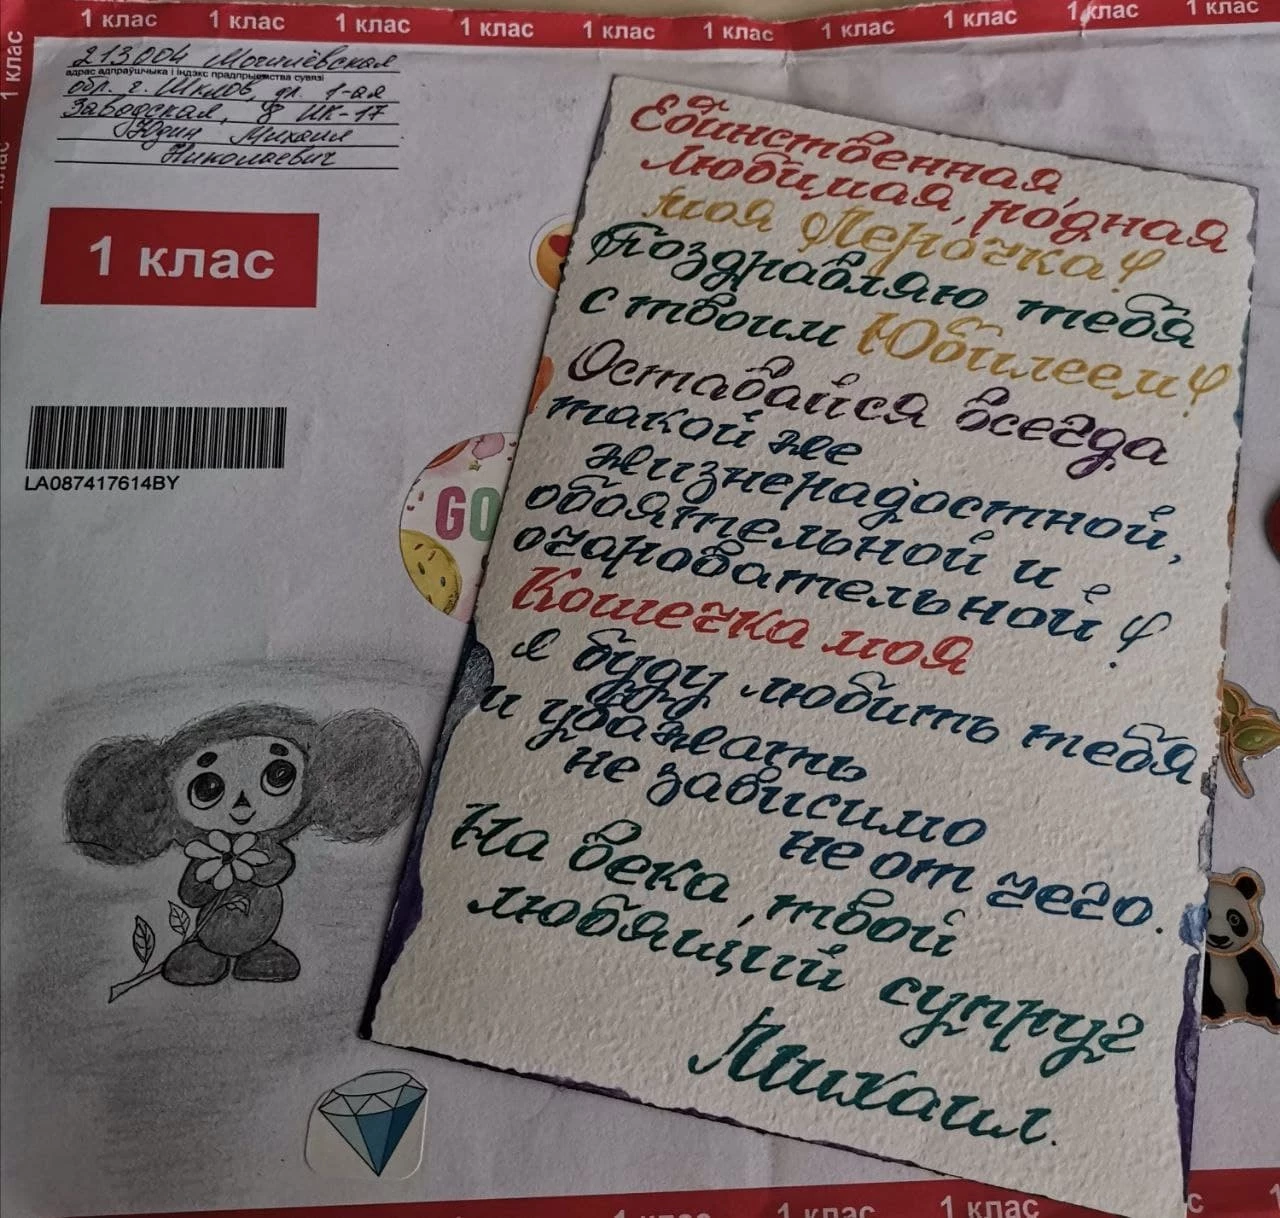 1 клас 1 клас 1 клас 1 клас 1 клас 1 клас 1 клас 1 клас 1 клас 1 клас
1 клас
213004 Могилёвская
адрас адпраўшчыка і індэкс прадпрыемства сувязі
обл. г. Шклов, ул. 1-ая
Заводская, 8 ИК-17
Юдин Михаил
Николаевич
1 клас
LA087417614BY
GO
Единственная,
любимая, родная
моя Лерочка!
Поздравляю тебя
с твоим Юбилеем!
Оставайся всегда
такой же
жизнерадостной,
обоятельной и
очаровательной!
Кошечка моя
я буду любить тебя
и уважать
не зависимо
не от чего.
На века, твой
любящий супруг
Михаил.
1 клас 1 клас 1 клас